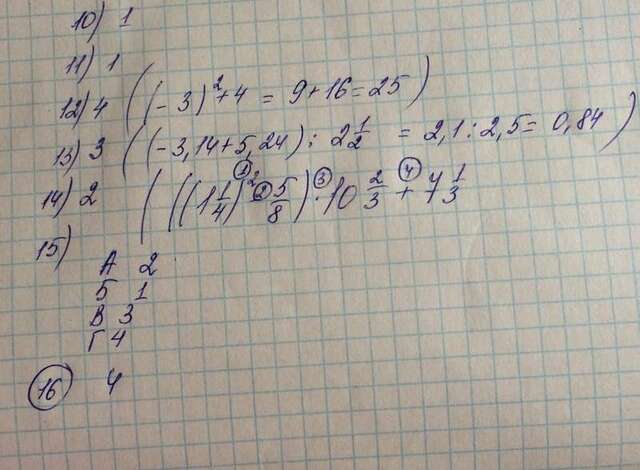 10) 1
11) 1
12) 4 ((-3)²+4 = 9+16=25)
13) 3 ((-3,14+5,24) : 2 1/2 = 2,1 : 2,5 = 0,84)
14) 2 (((1 1/4)² - 5/8) · 10 2/3 + 7 1/3
1 2 3 4
15)
А 2
Б 1
В 3
Г 4
16 4